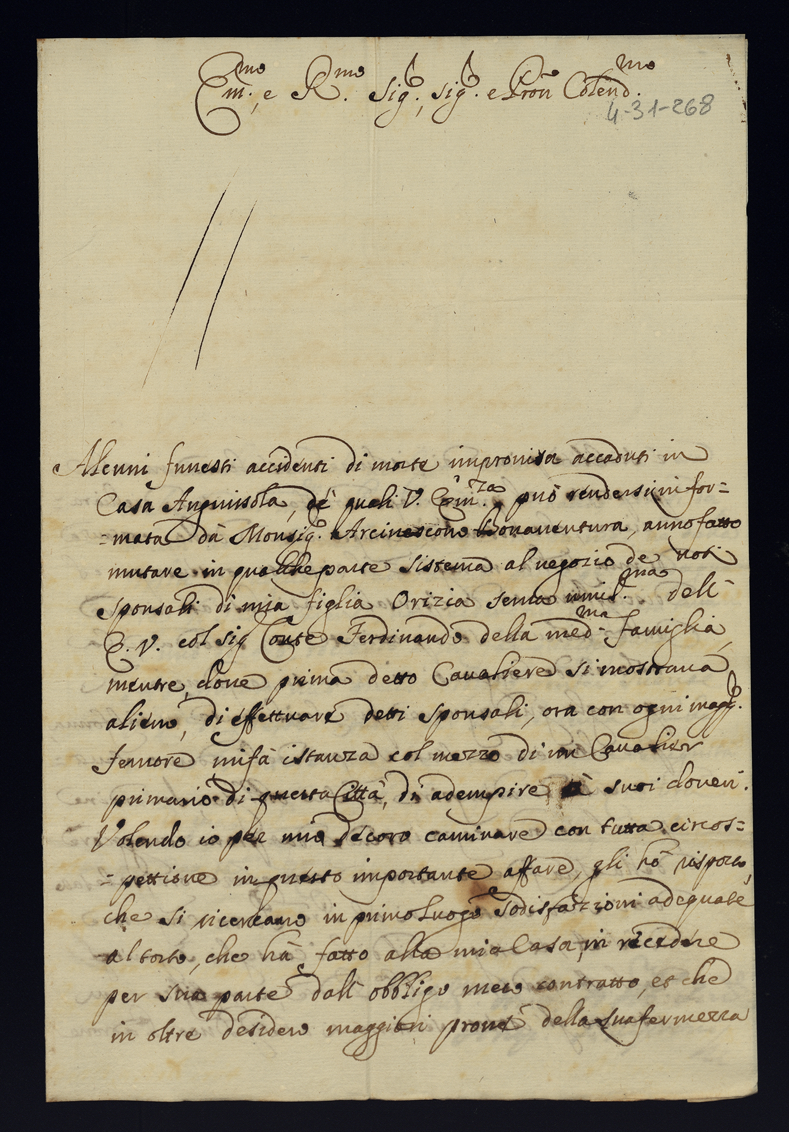 Em.mo, e R.mo Sig.r, Sig.r e Pron Colend.mo
4-31-268
Alcuni funesti accidenti di morte improvisa accaduti in
Casa Anguissola, de quali V. Em.za può rendersi infor=
=mata dà Monsig.r Arcivescovo Bonaventura, anno fatto
mutare in qualche parte sistema al negozio de noti
sponsali di mia figlia Orizia serva umil.ma dell'
E. V. col sig Conte Ferdinando della med.ma famiglia,
mentre, dove prima detto Cavaliere si mostrava
alieno, di effettuare detti sponsali, ora con ogni magg.r
fervore mi fà istanza col mezzo di un Cavalier
primario di questa Città, di adempire à suoi doveri.
Volendo io per mio decoro caminare con tutta circos=
=pettione in questo importante affare, gli hò risposto,
che si ricercano in primo luogo e sodisfazioni adeguate
al torto, che hà fatto alla mia Casa, in recedere
per sua parte dall' obbligo meco contratto, et che
in oltre desidero maggiori prove della sua fermezza